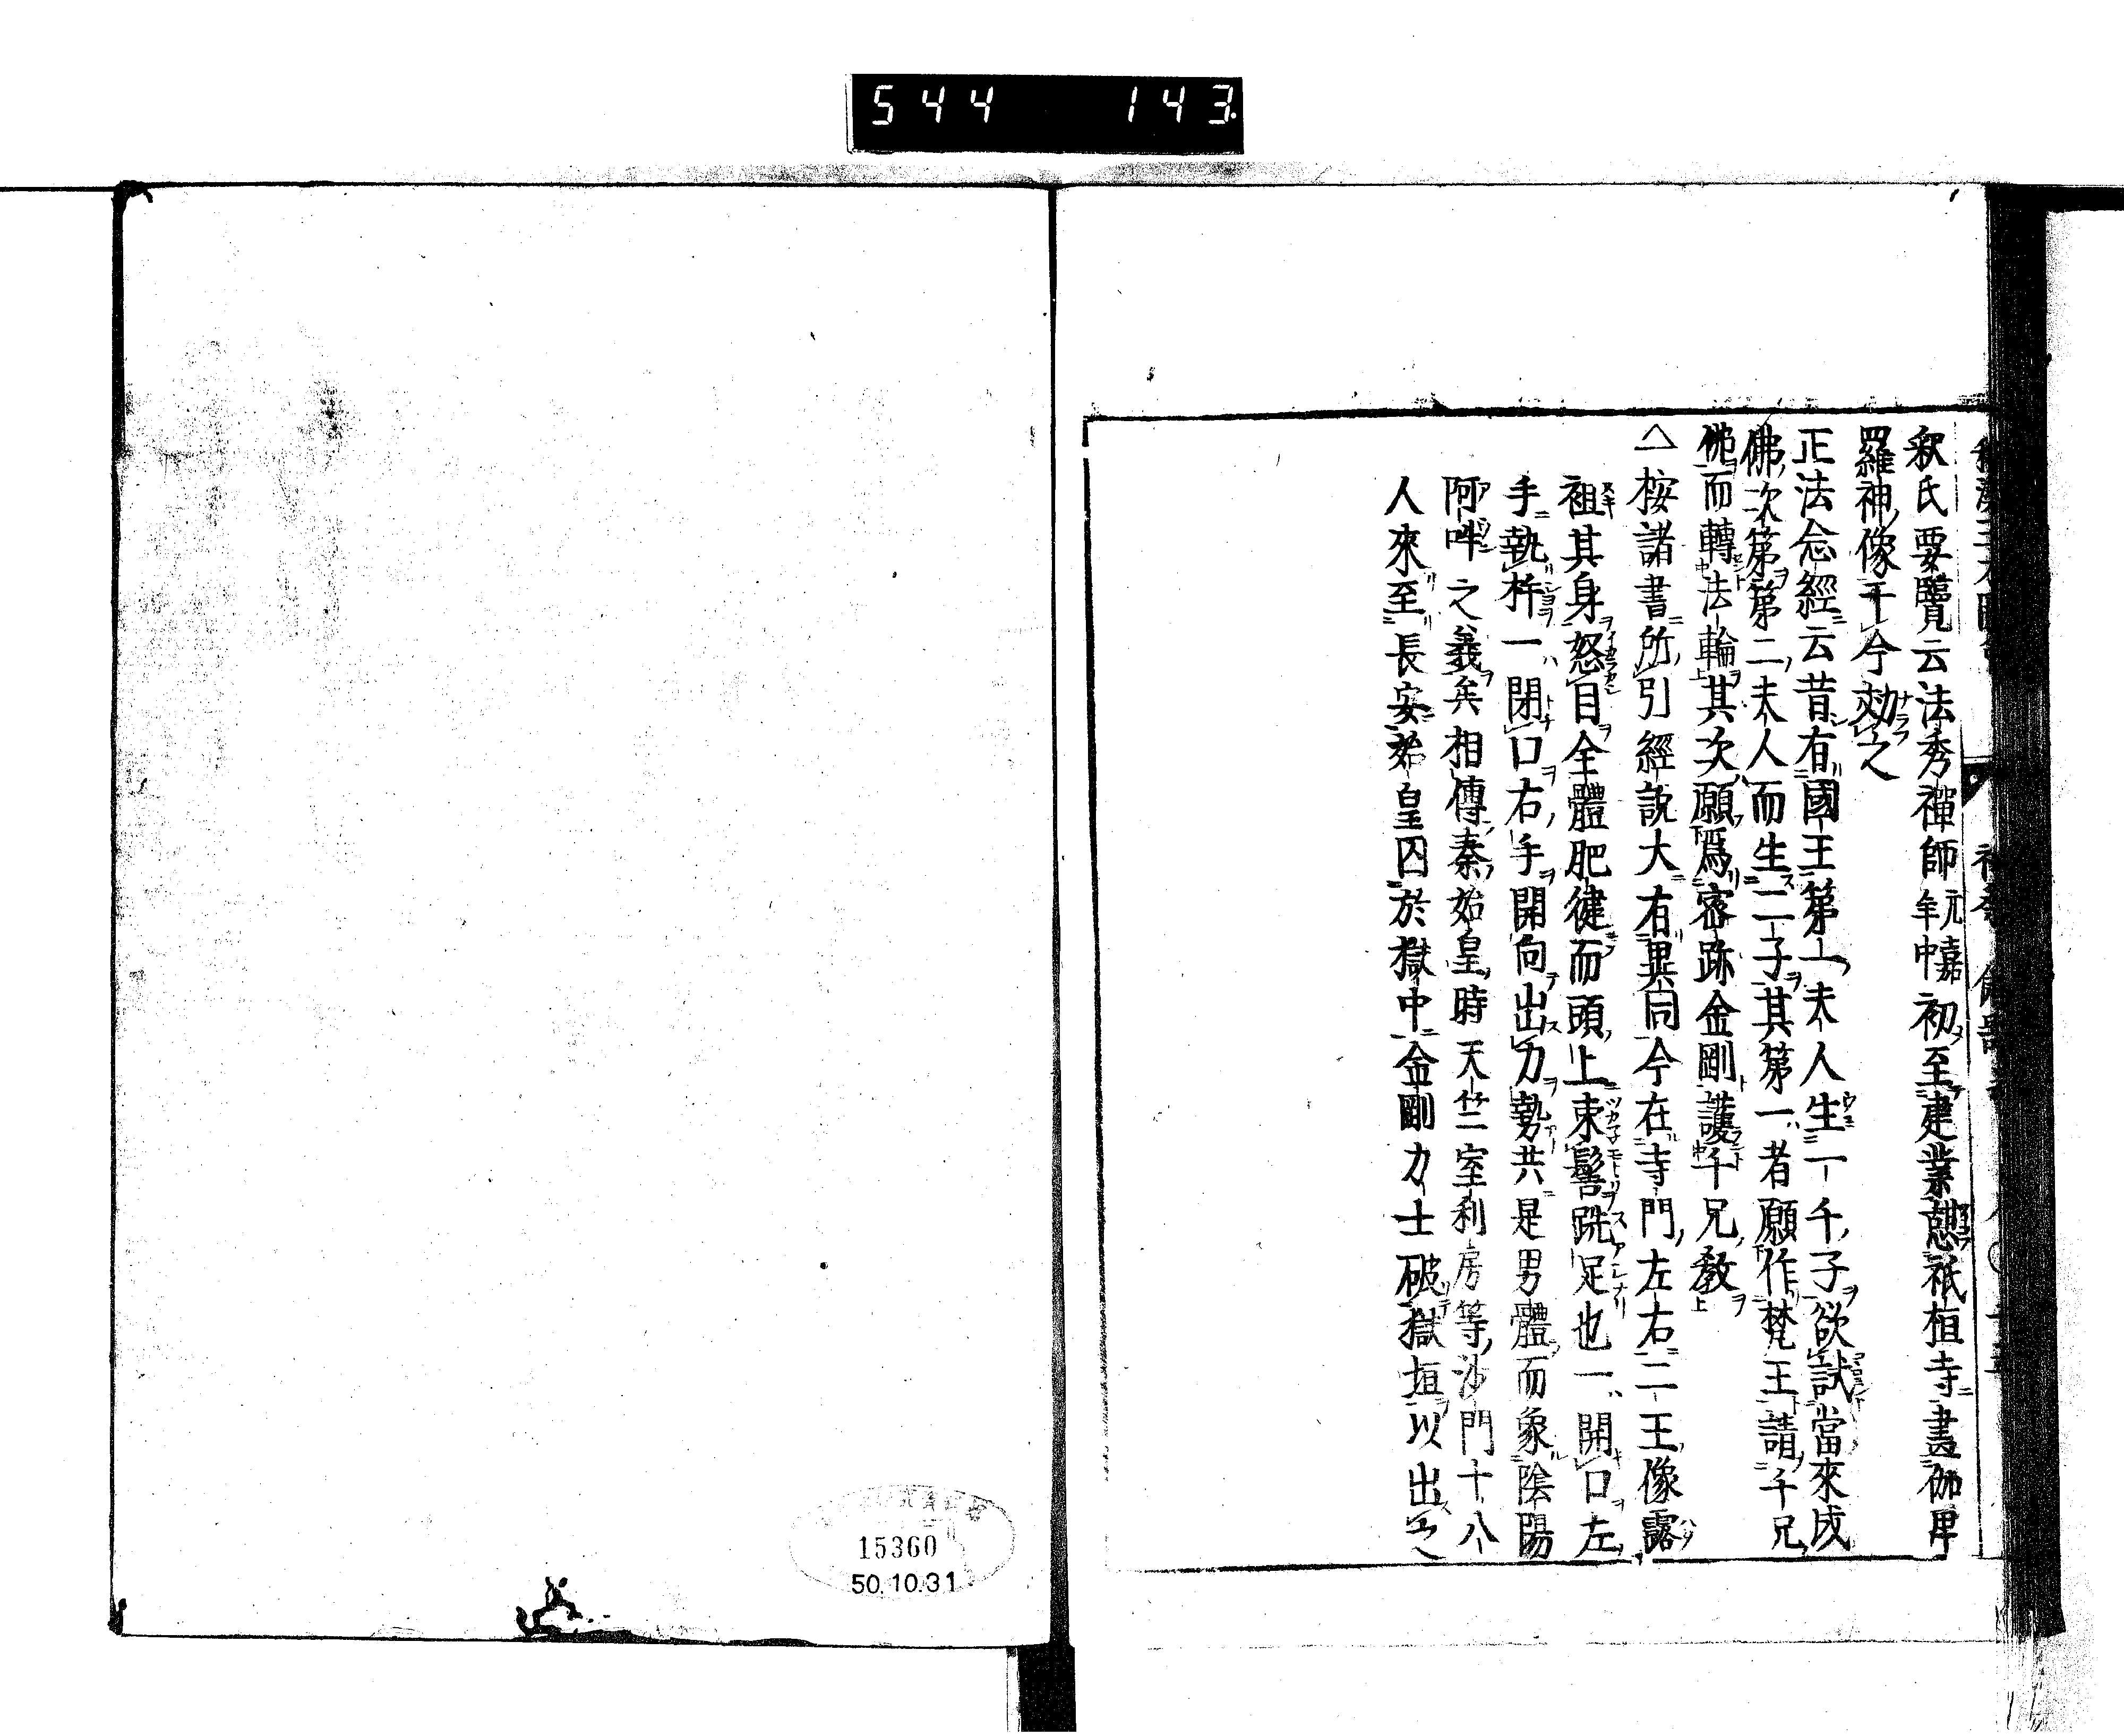 544 143
釈氏要覽云法秀禪師元嘉年中初至建業憩祇桓寺畫伽毘
羅神像于今効之
正法念經云昔有國王第一夫人生一千子欲試當來成
佛次第第二夫人而生二子其第一者願作梵王請千兄
佛而轉法輪其次願爲密跡金剛護千兄敎
△按諸書所引經説大有異同今在寺門左右二王像露
袒其身怒目全體肥健而頭上束髻跣足也一開口左
手執杵一閉口右手開向出力勢共是男體而象陰陽
阿吽之義矣相傳秦始皇時天竺室利房等沙門十八
人來至長安始皇囚於獄中金剛力士破獄垣以出之
15360
50.10.31